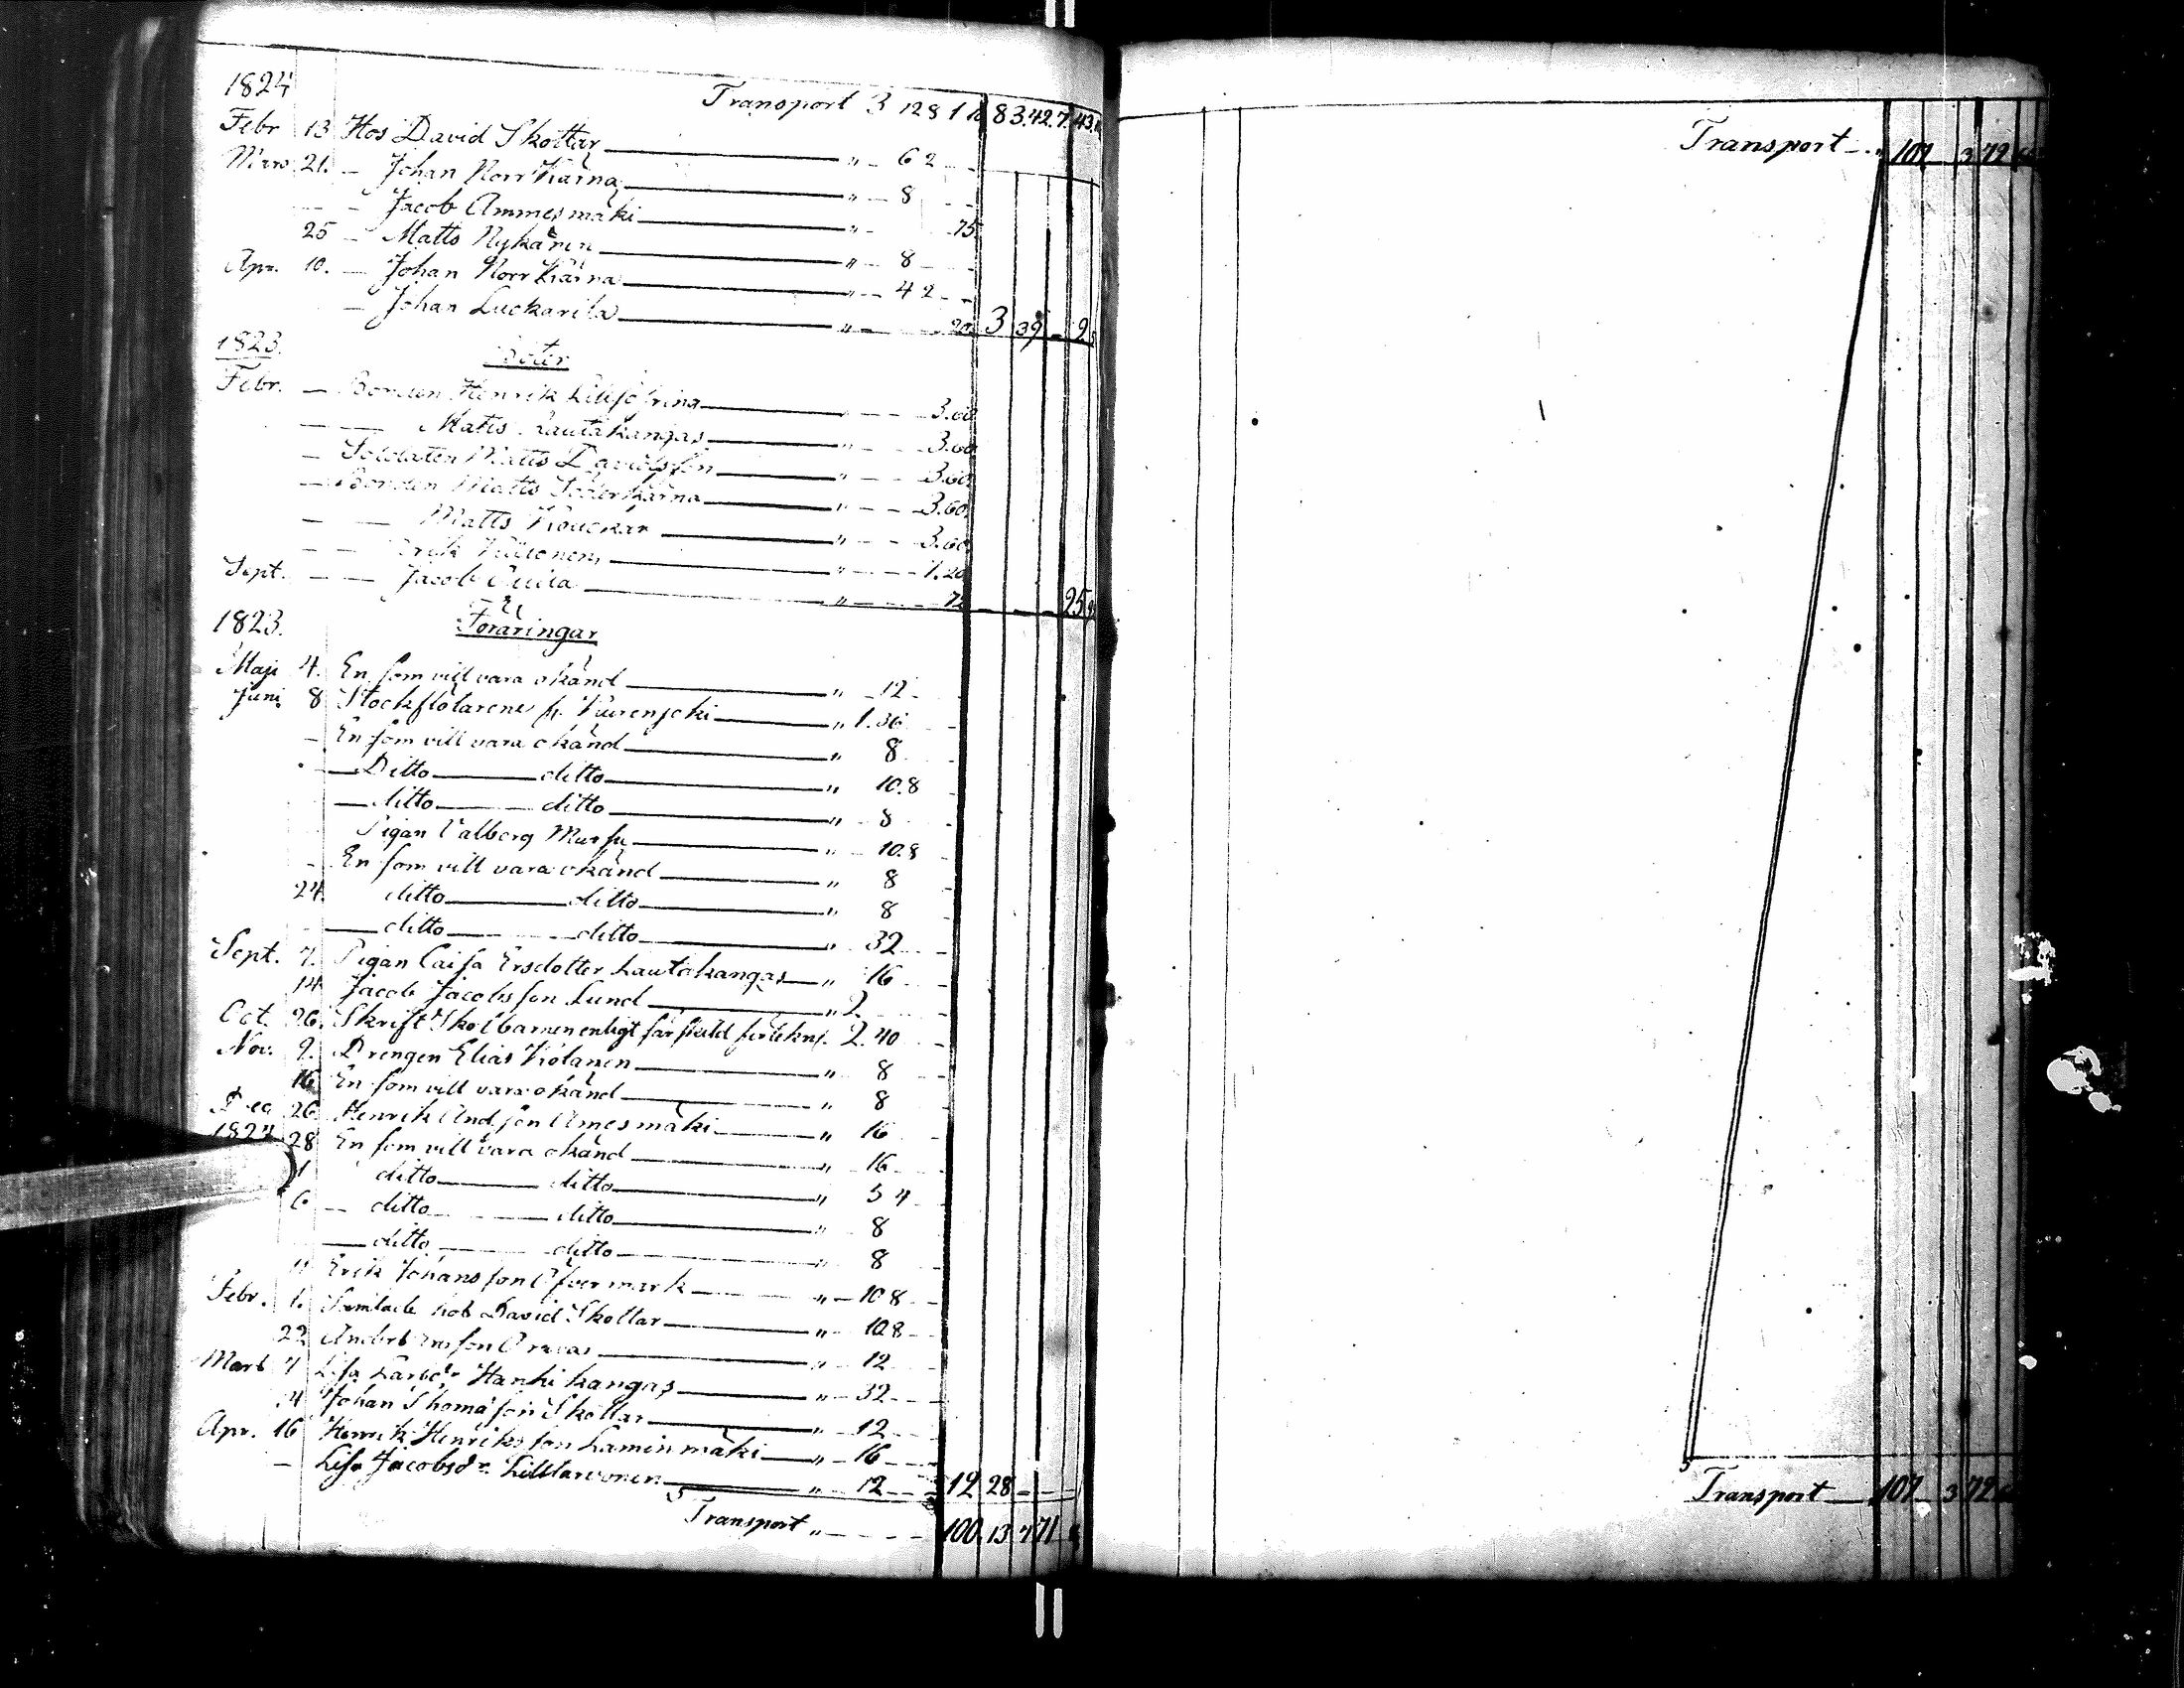 1824
Transport 3 128 1 83.42.7.43
Febr 13 Hos David Skottar " 6 2
Mars 21. Johan Norr Kärna " 8
Jacob Ammesmäki " 75
25 Matts Nykänen " 8
Apr. 10. Johan Norr Kärna " 4 2
Johan Luckarila " 20 3 39 2
1823. Böter
Febr. Bonden Henrik 3.60
Matts Lautakangas " 3.60
Soldaten Matts Davidsson " 3.60
Bonden Matts Söderkärna " 3.60
Matts " 3.60
Erik " 1.20
Sept. Jacob " 25
1823. Föräringar
Maji 4. En som vill vara okänd " 12
Juni 8 Stockflötarene " 1.36
En som vill vara okänd " 8
Ditto ditto " 10.8
ditto ditto " 8
Pigan Valborg " 10.8
En som vill vara okänd " 8
24. ditto ditto " 8
ditto ditto " 32
Sept. 7. Pigan Caisa Ersdotter Lautakangas " 16
14 Jacob Jacobsson Lund " 2
Oct. 26. Skrift Skolbarnen enligt särskild 2.40
Nov. 9. Drengen Elias Kolanen " 8
16 En som vill vara okänd " 8
Dec 26 Henrik And.son Amesmäki " 16
1824 28 En som vill vara okänd " 16
1 ditto ditto " 5 4
6 ditto ditto " 8
ditto ditto " 8
11 Erik Johansson Öfvermark " 10 8
Febr. 1. Samlade hos David Skottar " 10.8
22 Anders " 12
Mars 7 Lisa Hanhikangas " 32
14 Johan Thomasson Skottar " 12
Apr. 16 Henrik Henriksson Laminmäki " 16
Lisa Jacobsdr. Lilltarvonen " 12 12 28
Transport " 100.13.7.71
Transport 107 3 72
Transport 107 3 72